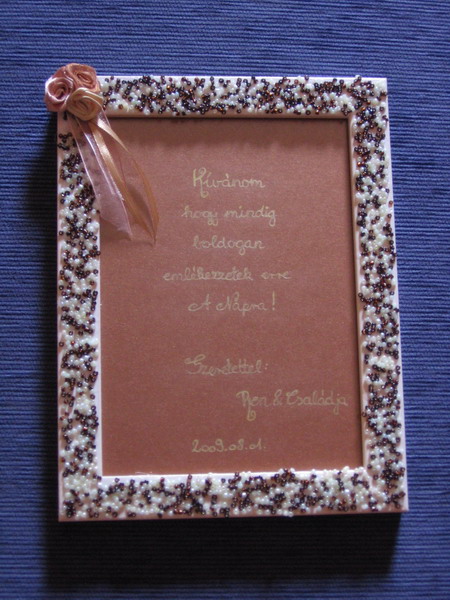 Kívánom
hogy mindig
boldogan
emlékezzetek erre
A Napra!
Szeretettel:
Ren & Családja
2009.08.01.